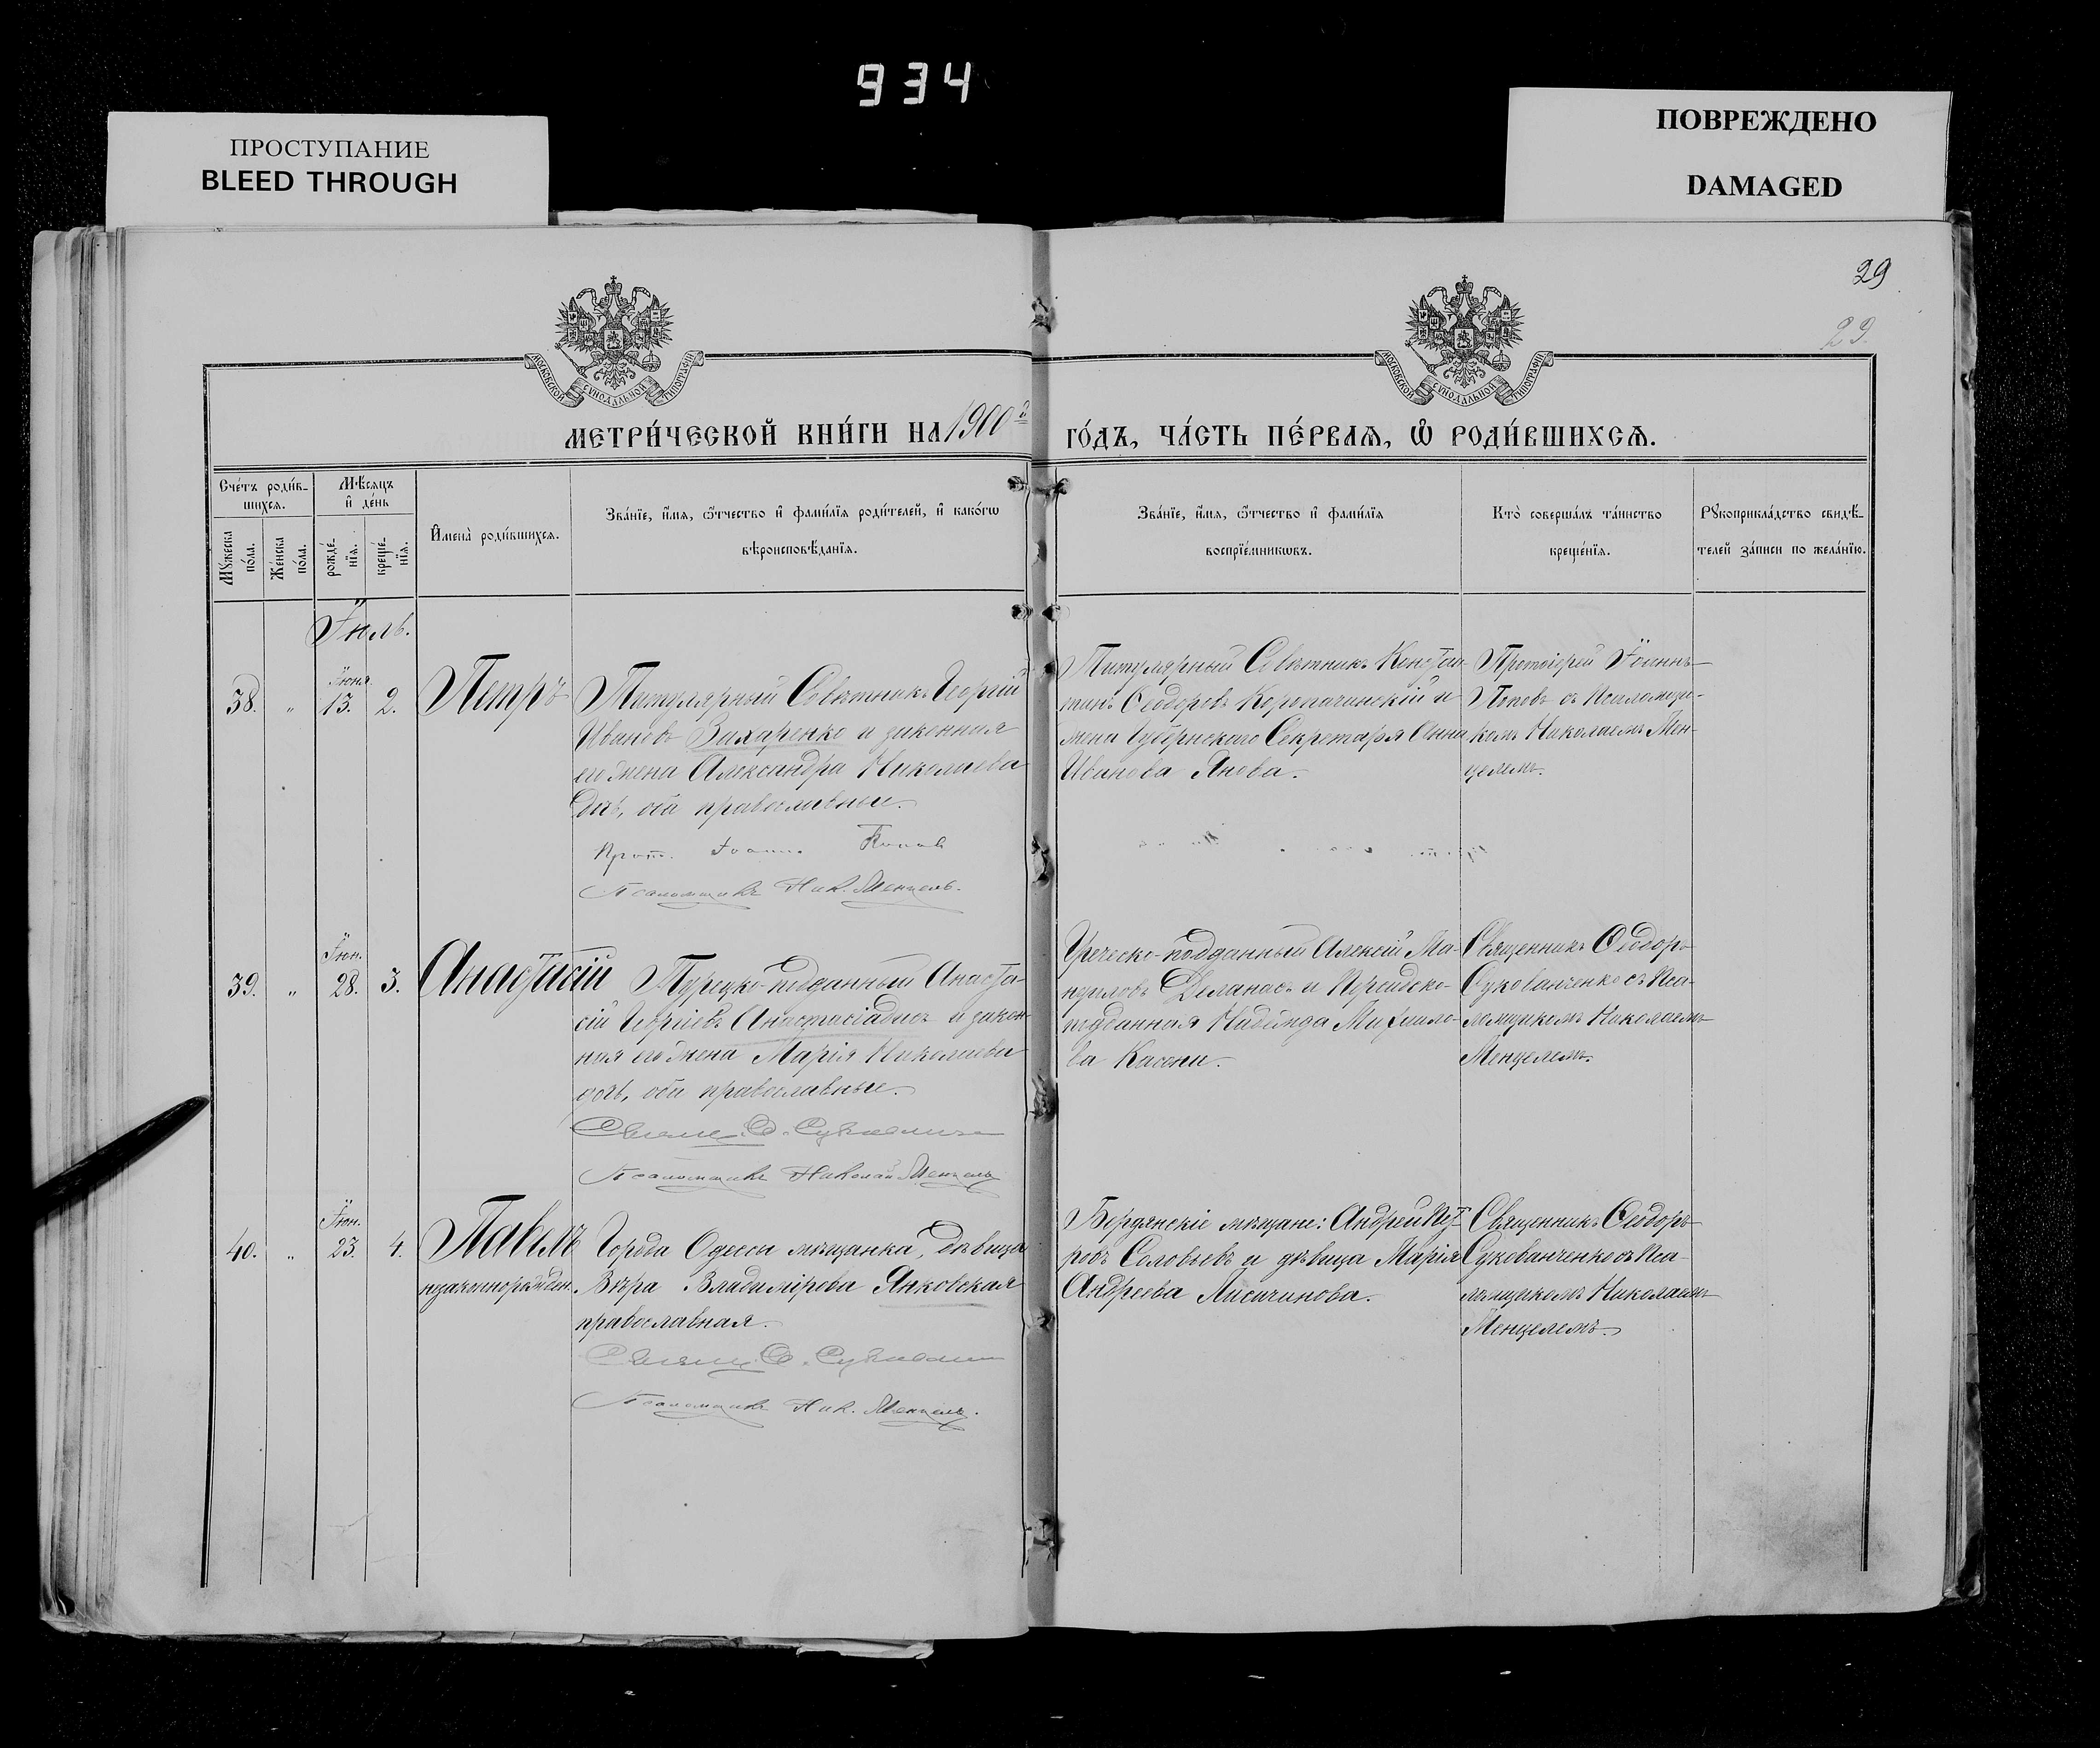 934
ПРОСТУПАНИЕ
BLEED THROUGH
ПОВРЕЖДЕНО
DAMAGED
29
29.
МОСКОВСКОЙ СѴНОДАЛЬНОЙ ТИПОГРАФІИ
МОСКОВСКОЙ СѴНОДАЛЬНОЙ ТИПОГРАФІИ
МЕТРИ́ЧЕСКОЙ КНИ́ГИ НА 1900й ГО́ДЪ, ЧА́СТЬ ПЕ́РВАѦ, Ѡ҆ РОДИ́ВШИХСѦ.
Сче́тъ роди́в-
шихсѧ.
Мꙋ́жеска
по́ла.
Же́нска
по́ла.
Мѣ́сѧцъ
и҆ де́нь
рожде́-
нїѧ.
креще́-
нїѧ.
И҆мена̀ роди́вшихсѧ.
Зва́нїе, и҆́мѧ, ѻ҆́тчество и҆ фами́лїѧ роди́телей, и҆ како́гѡ
вѣроисповѣ́данїѧ.
Зва́нїе, и҆́мѧ, ѻ҆́тчество и҆ фами́лїѧ
воспрїе́мникѡвъ.
Кто̀ соверша́лъ та́инство
креще́нїѧ.
Рꙋкоприкла́дство свидѣ́-
телей за́писи по жела́нїю.
Іюль.
38.
„
Іюня
13.
2.
Петръ
Титулярный Совѣтникъ Георгій
Ивановъ Захаренко и законная
его жена Александра Николаева
дчь, оба православные.
Прот. Іоаннъ Поповъ
Псаломщикъ Ник. Менцель.
Титулярный Совѣтникъ Констан-
тинъ Ѳеодоровъ Коропачинскій и
жена Губернскаго Секретаря Анна
Иванова Янова.
Протоіерей Іоаннъ
Поповъ съ псаломщи-
комъ Николаемъ Мен-
целемъ.
39.
„
Іюн.
28.
3.
Анастасій
Турецко-подданный Анаста-
сій Георгіевъ Анастасіадисъ и закон-
ная его жена Марія Николаева
дочь, оба православные.
Свящ. Ѳ.
Псаломщикъ Николай Менцель
Греческо-подданный Алексій Ма-
Деланасъ и Персидско-
подданная Надежда Михаило-
ва Касони.
Священникъ Ѳеодоръ
Сукованченко съ Пса-
ломщикомъ Николаемъ
Менцелемъ.
40.
„
Іюн.
23.
4.
Павелъ
незаконнорожден.
Города Одессы мѣщанка, дѣвица
Вѣра Владимірова Янковская
православная.
Свящ. Ѳ.
Псаломщикъ Ник. Менцель.
Бердянскіе мѣщане: Андрей Пет-
ровъ Соловьевъ и дѣвица Марія
Андреева Лисичинова.
Священникъ Ѳеодоръ
Сукованченко съ Пса-
ломщикомъ Николаемъ
Менцелемъ.